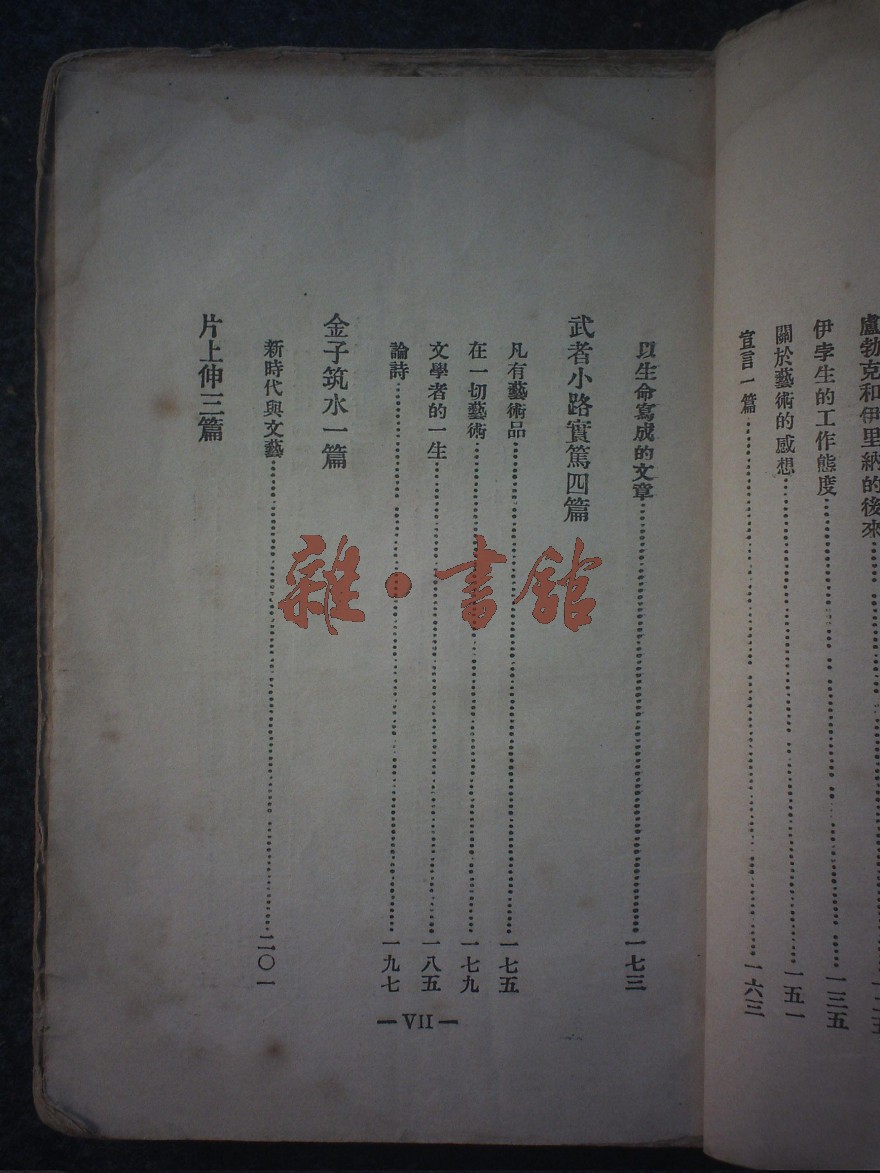 盧勃克和伊里納的後來……一二五
伊孛生的工作態度……一三五
關於藝術的感想……一五一
宣言一篇……一六三
以生命寫成的文章……一七三
武者小路實篤四篇
凡有藝術品……一七五
在一切藝術……一七九
文學者的一生……一八五
論詩……一九七
金子筑水一篇
新時代與文藝……二〇一
片上伸三篇
— VII —
雜·書館